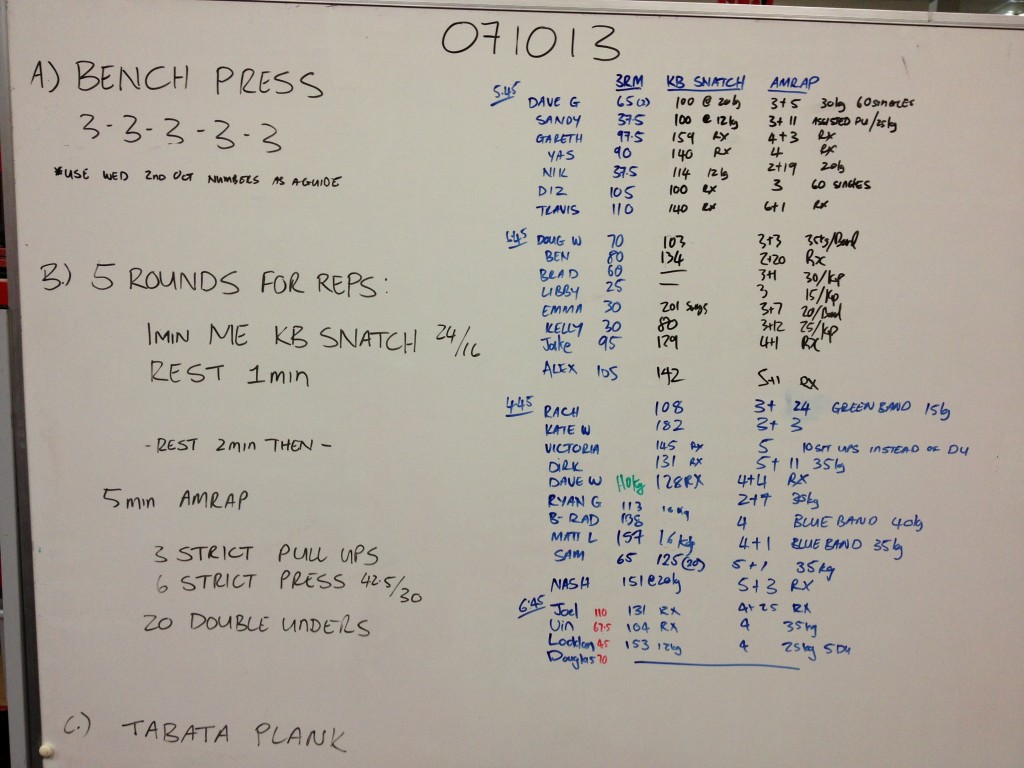 071013
A) BENCH PRESS
3-3-3-3-3
*USE WED 2ND OCT NUMBERS AS A GUIDE
B.) 5 ROUNDS FOR REPS:
1MIN ME KB SNATCH 24/16
REST 1min
- REST 2MIN THEN -
5min AMRAP
3 STRICT PULL UPS
6 STRICT PRESS 42.5/30
20 DOUBLE UNDERS
C.) TABATA PLANK
3RM KB SNATCH AMRAP
5.45
DAVE G 65(2) 100 @ 20kg 3+5 30kg 60 SINGLES
SANDY 37.5 100 @ 12kg 3+11 ASSISTED PU/25kg
GARETH 97.5 159 RX 4+3 RX
YAS 90 140 RX 4 RX
NIK 37.5 114 12kg 2+19 20kg
DIZ 105 100 RX 3 60 SINGLES
TRAVIS 110 140 RX 6+1 RX
6.45 DOUG W 70 103 3+3
BEN 80 134 2+20 RX
BRAD 60 — 3+1 30/Kip
LIBBY 25 — 3 15/Kip
EMMA 30 201 3+7 20/Band
KELLY 30 80 3+12 25/Kip
Jake 95 129 4+1 RX
ALEX 105 142 5+11 RX
4.45 RACH 108 3+ 24 GREEN BAND 15kg
KATE W 182 3+ 3
VICTORIA 145 RX 5 10 SIT UPS INSTEAD OF DU
DIRK 131 RX 5+ 11 35kg
DAVE W 110kg 128RX 4+4 RX
RYAN G 113 16kg 2+9 35kg
B-RAD 138 4 BLUE BAND 40kg
MATT L 157 16kg 4+1 BLUE BAND 35kg
SAM 65 125(20) 5+1 35kg
NASH 151@20kg 5+3 RX
6:45 Joel 110 131 RX 4+25 RX
Vin 67.5 104 RX 4 35kg
Lochlan 45 153 12kg 4 25kg 5DU
Douglas 70